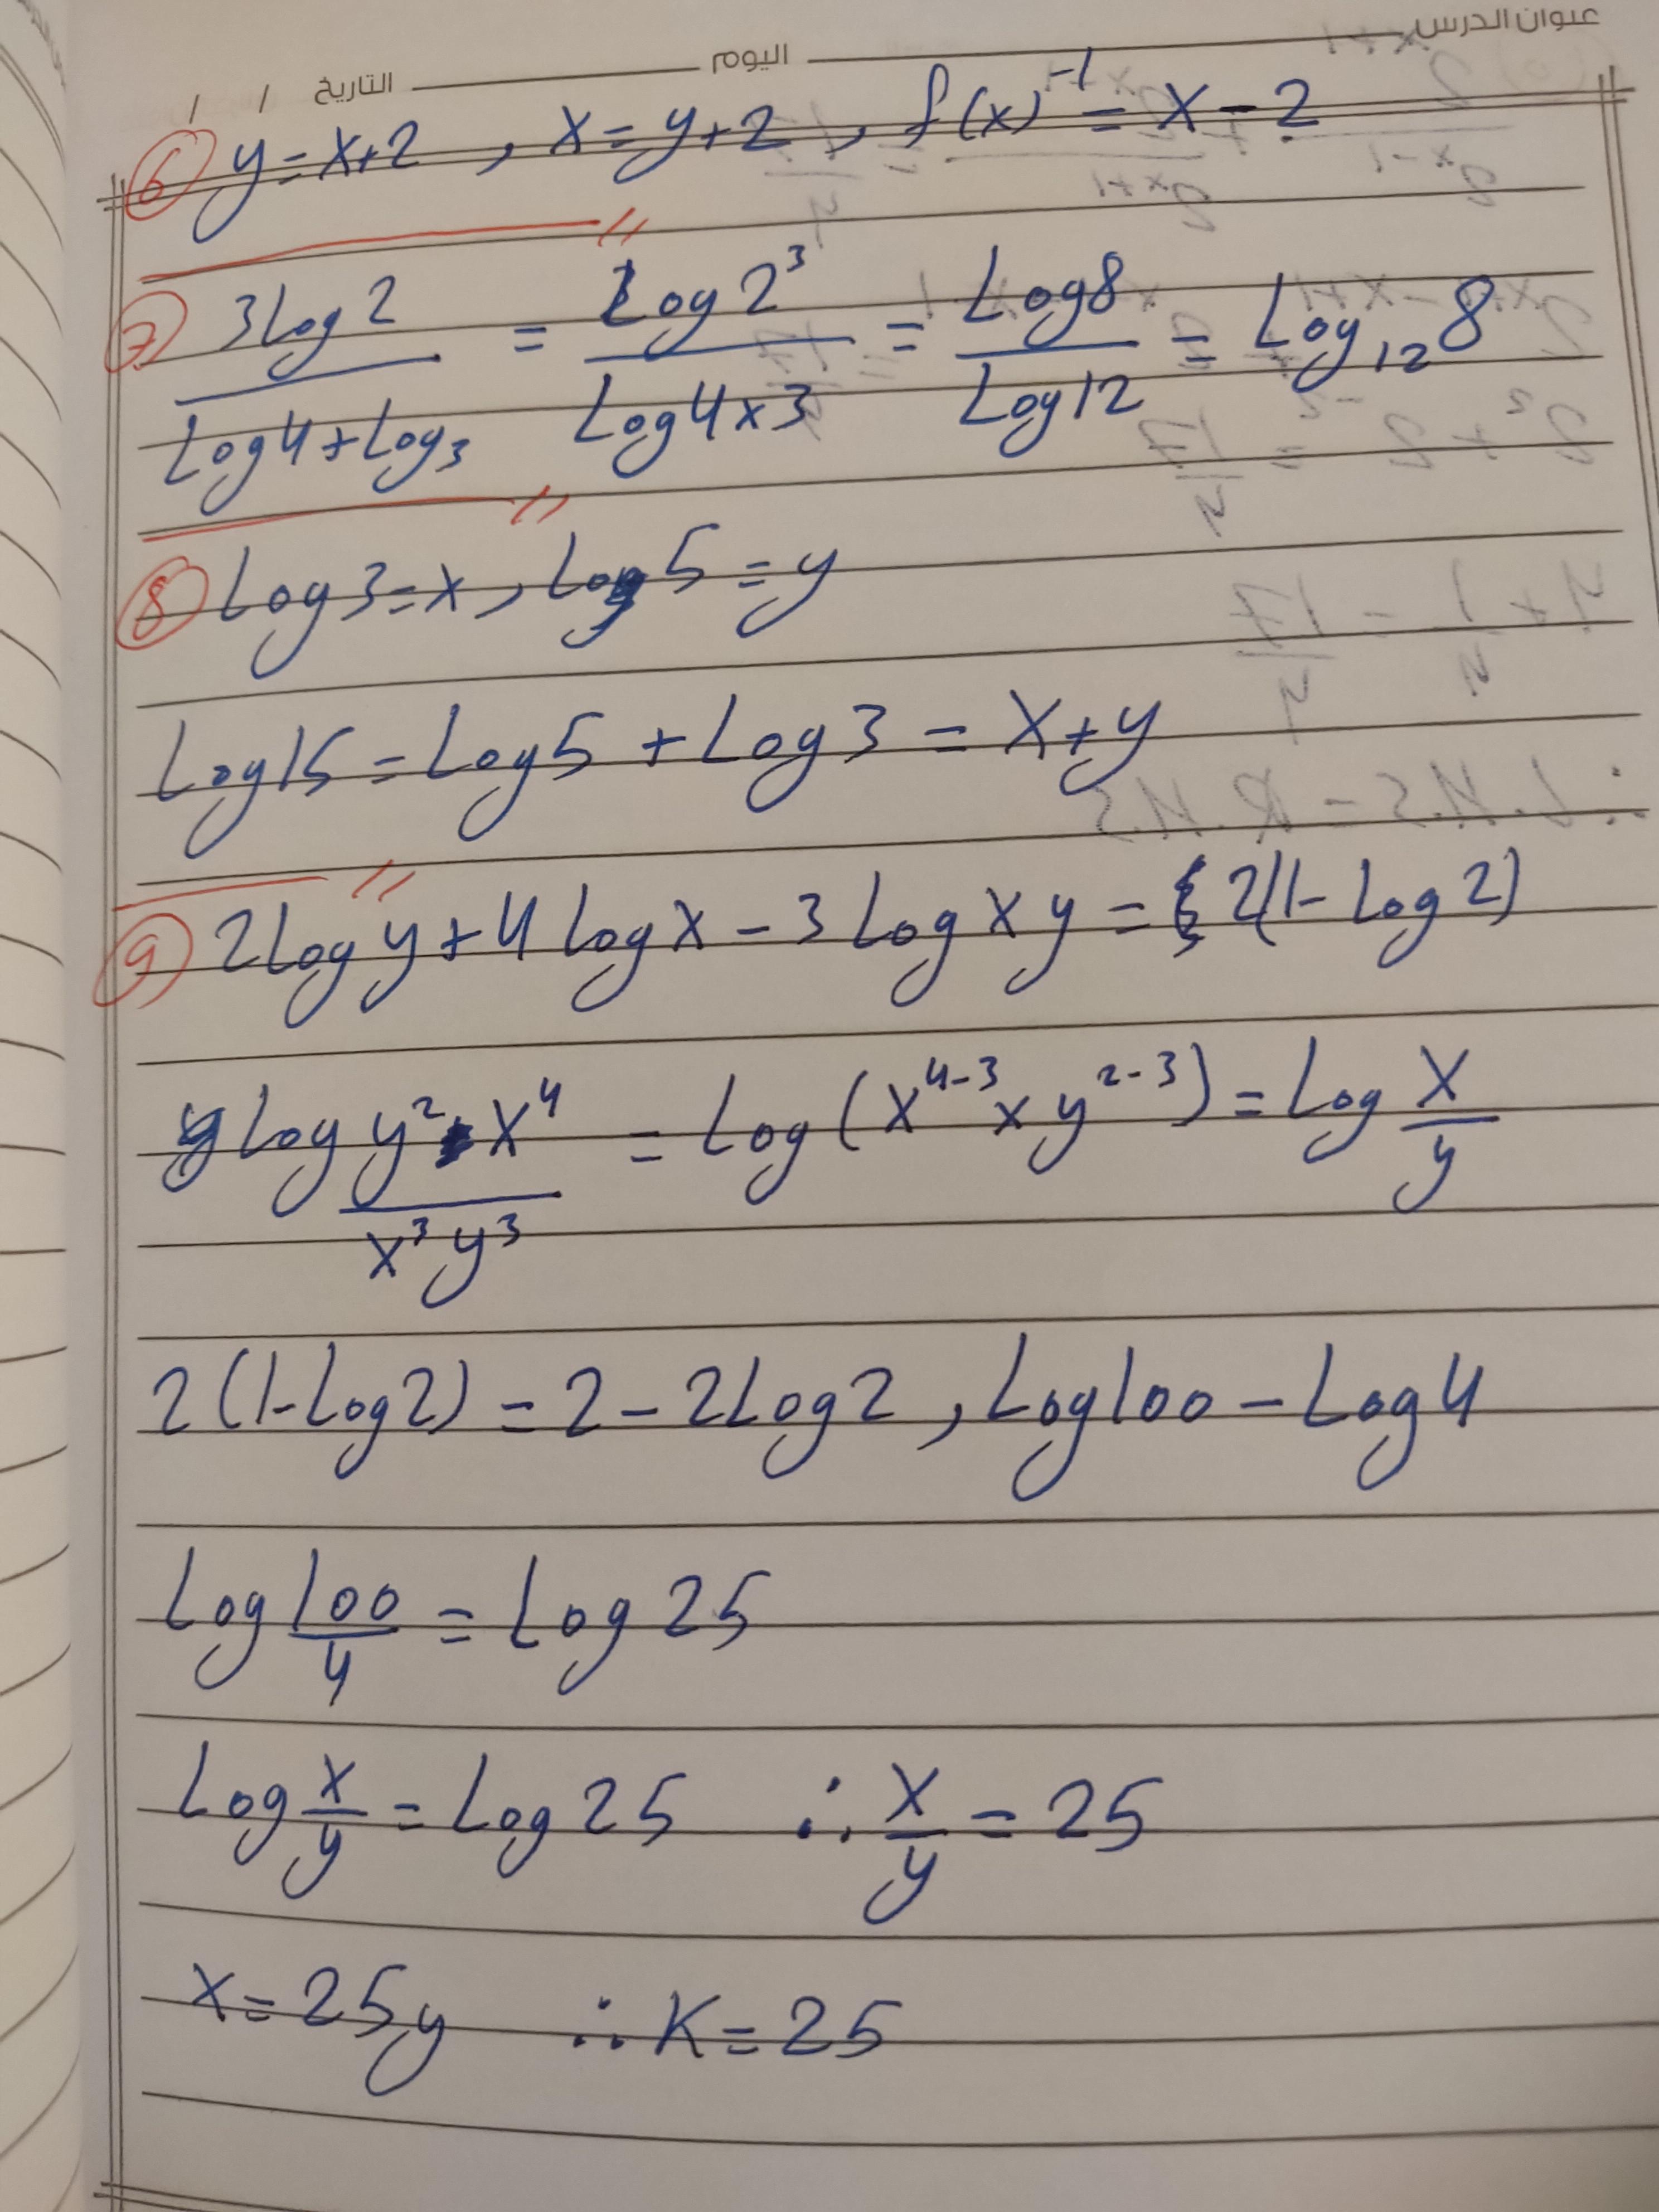 عنوان الدرس اليوم التاريخ / /
6 y = x+2 , x = y+2 , f(x)⁻¹ = x - 2
7 3Log2 / Log4+Log3 = Log2³ / Log4x3 = Log8 / Log12 = Log₁₂8
8 Log3=x, Log5=y
Log15 = Log5 + Log3 = x+y
9 2Log y + 4 Log x - 3 Log x y = 2(1- Log 2)
Log y² x⁴ / x³ y³ = Log (x⁴⁻³ x y²⁻³) = Log x / y
2(1-Log2) = 2 - 2Log2 , Log100 - Log4
Log 100 / 4 = Log 25
Log x / y = Log 25 ∴ x / y = 25
x = 25y ∴ K = 25